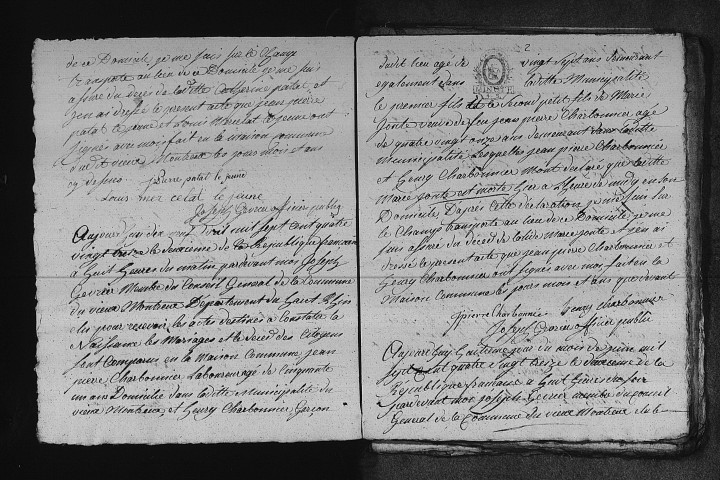 de ce Domicile, je me suis sur le Champ
transporté au lieu de ce Domicile je me suis
assuré du décès de ladite Catherine patat, et
j'en ai dressé le présent acte que jean pierre
patat le jeune et Louis Mercelat le jeune ont
Signés avec moi fait en la maison commune
du dit vieux Montieux les jours mois et ans
cy dessus. pierre patat le jeune
Louis mercelat le jeune
Joseph Gevrey officier public
Aujourd'huy dix neuf Avril mil Sept cent quatre
vingt treize le deuxieme de la Republique française
à huit heures du matin pardevant moi Joseph
Gevrey Membre du Conseil General de la Commune
du vieux Montieux Département du
élu pour recevoir les actes destinés a Constater la
Naissance les Mariages et le décès des Citoyens
sont Comparus en la Maison Commune jean
pierre Charbonnier Laboureur agé de Cinquante
un ans Domicilié dans ladite Municipalité du
vieux Montieux et henry Charbonnier Garçon
2
dudit lieu agé de vingt Sept ans demeurant
egalement dans ladite Municipalité
le premier fils et le Second petit fils de Marie
jonte veuve de feu jean pierre Charbonnier agée
de quatre vingt onze ans demeurant dans ladite
municipalité Lesquels jean pierre Charbonnier
et henry Charbonnier M'ont declaré que ladite
Marie jonte est morte hier a l'heure de midy en son
Domicile D'après cette declaration je me suis sur
le Champ transporté au lieu de ce Domicile je me
suis assuré du décès de ladite Marie jonte et j'en ai
dressé le présent acte que jean pierre Charbonnier et
henry Charbonnier ont Signés avec moi fait en la
Maison Commune les jours mois et ans que devant
J pierre Charbonnier henry Charbonnier
Joseph Gevrey officier public
Aujourd'huy huitieme jour du mois de juin mil
sept cent quatre vingt treize le deuxieme de la
Republique française a huit heures du soir
pardevant moi joseph Gevrey membre du conseil
General de la Commune du vieux Montieux élu